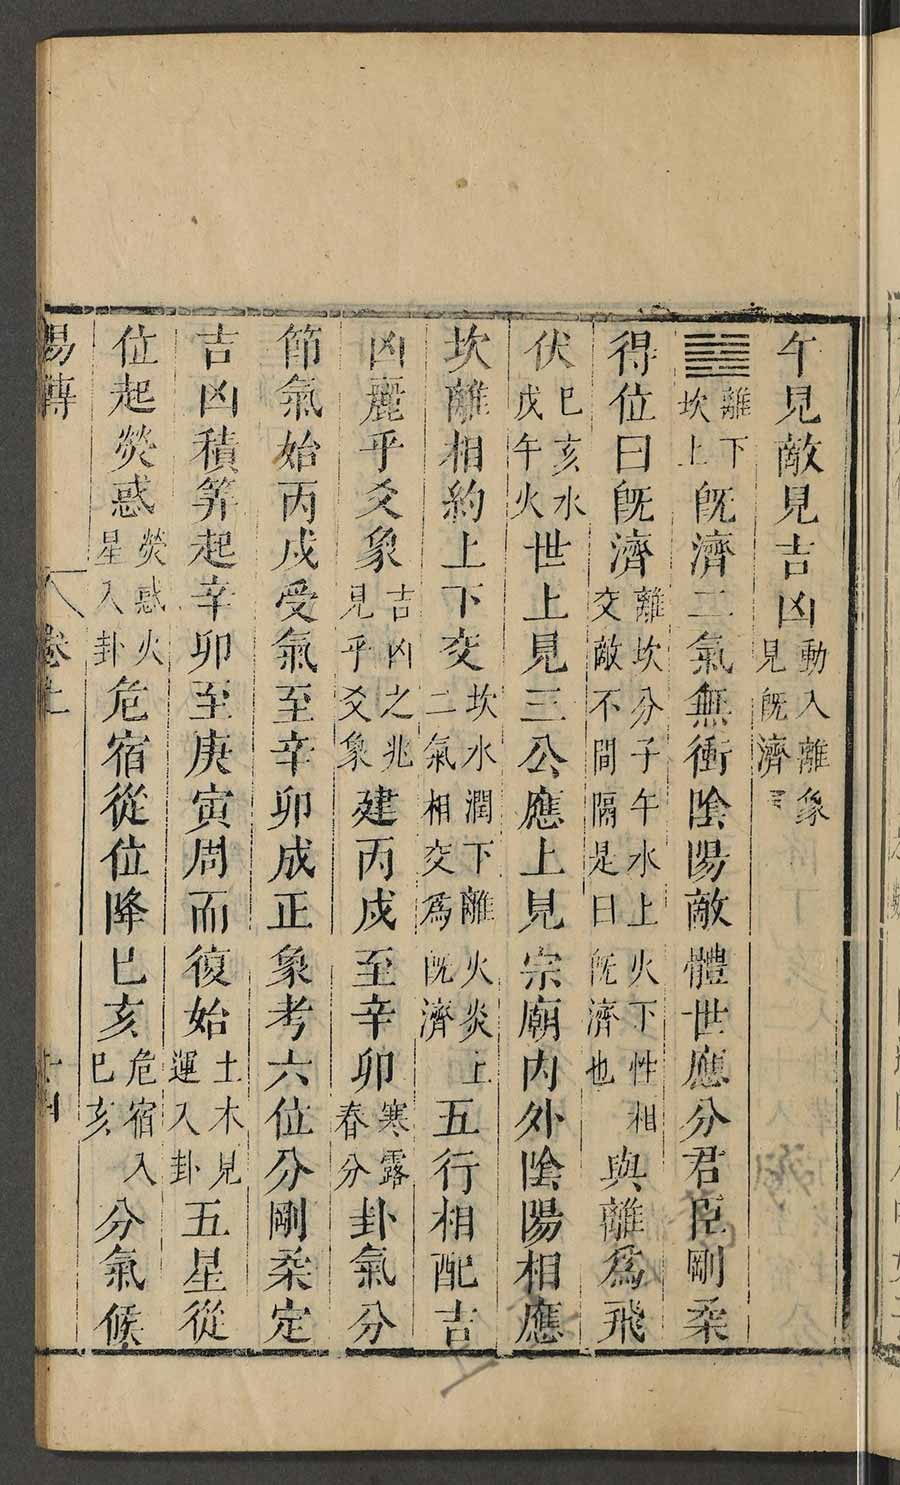 午見敵見吉凶動入離象見旣濟
䷾離下坎上旣濟二氣無衝陰陽敵體世應分君臣剛柔
得位曰旣濟離坎分子午水上火下性相交敵不間隔是曰旣濟也與離爲飛
伏已亥水戊午火世上見三公應上見宗廟内外陰陽相應
坎離相約上下交坎水潤下離火炎上二氣相交爲旣濟五行相配吉
凶麗乎爻象吉凶之兆見乎爻象建丙戍至辛卯寒露春分卦氣分
節氣始丙戍受氣至辛卯成正象考六位分剛柔定
吉凶積筭起辛卯至庚寅周而復始土木見運入卦五星從
位起熒惑熒惑火星入卦危宿從位降已亥危宿入已亥分氣候
易傳 卷上 十四